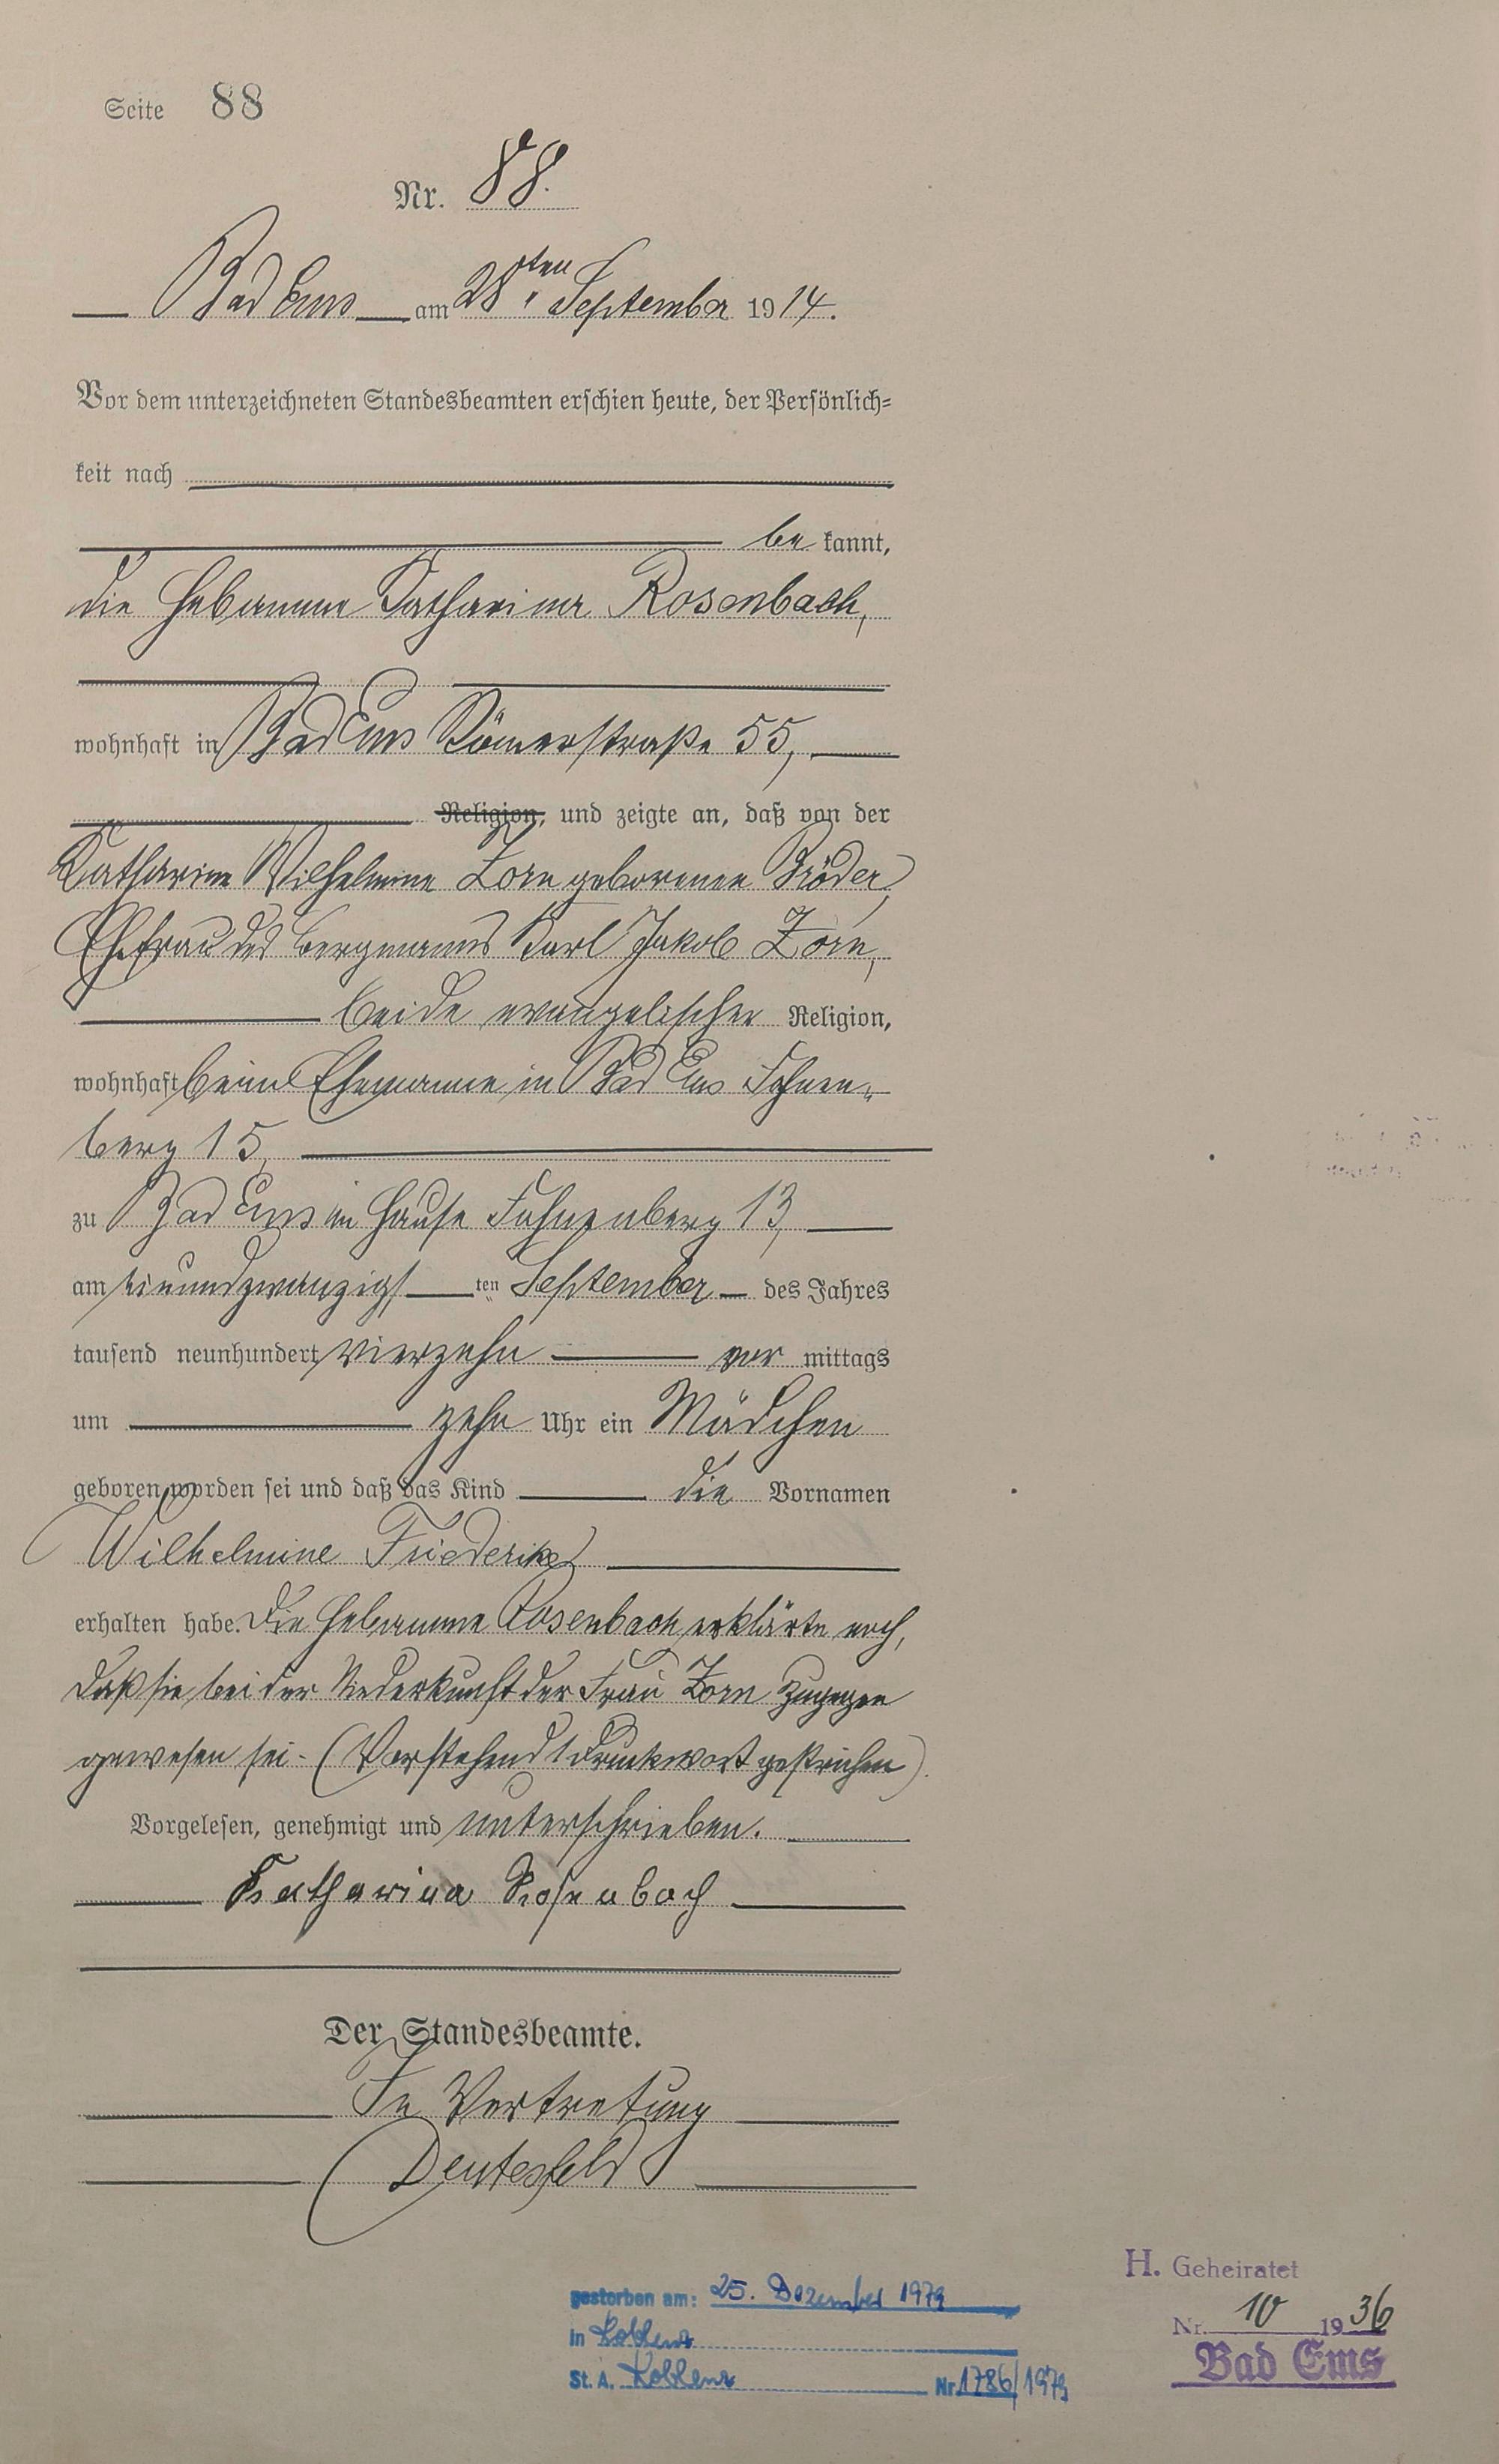 Seite 88
Nr. 88.
Bad Ems am 28ten September 1914.
Vor dem unterzeichneten Standesbeamten erschien heute, der Persönlich-
keit nach
be kannt,
die Hebamme Katharina Rosenbach,
wohnhaft in Bad Ems Römerstraße 55,
Religion, und zeigte an, daß von der
Katharine Wilhelmine Zorn geborenen Bröder,
Ehefrau des Bergmanns Karl Jakob Zorn,
beide evangelischer Religion,
wohnhaft beim Ehemanne in Bad Ems Fahnen-
berg 15,
zu Bad Ems im Hause Fahnenberg 13,
am einundzwanzigsten September des Jahres
tausend neunhundert vierzehn vor mittags
um zehn Uhr ein Mädchen
geboren worden sei und daß das Kind die Vornamen
Wilhelmine Friederike
erhalten habe. Die Hebamme Rosenbach erklärte noch,
daß sie bei der Niederkunft der Frau Zorn zugegen
gewesen sei. (Vorstehend 1 Druckwort gestrichen).
Vorgelesen, genehmigt und unterschrieben.
Katharina Rosenbach
Der Standesbeamte.
In Vertretung
Deutesfeld
gestorben am: 25. Dezember 1979
in Koblenz
St. A. Koblenz Nr. 1786/1979
H. Geheiratet
Nr. 10 1936
Bad Ems